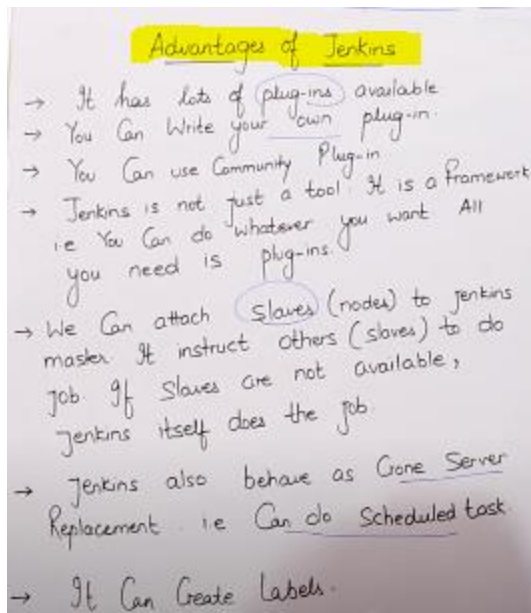 Advantages of Jenkins
→ It has lots of plug-ins available
→ You Can Write your own plug-in.
→ You Can use Community Plug-in
→ Jenkins is not just a tool. It is a framework
i.e You Can do whatever you want All
you need is plug-ins.
→ We Can attach Slaves (nodes) to jenkins
master. It instruct others (slaves) to do
job. If Slaves are not available,
jenkins itself does the job
→ Jenkins also behave as Crone Server
Replacement. i.e Can do Scheduled task
→ It Can Create Labels.